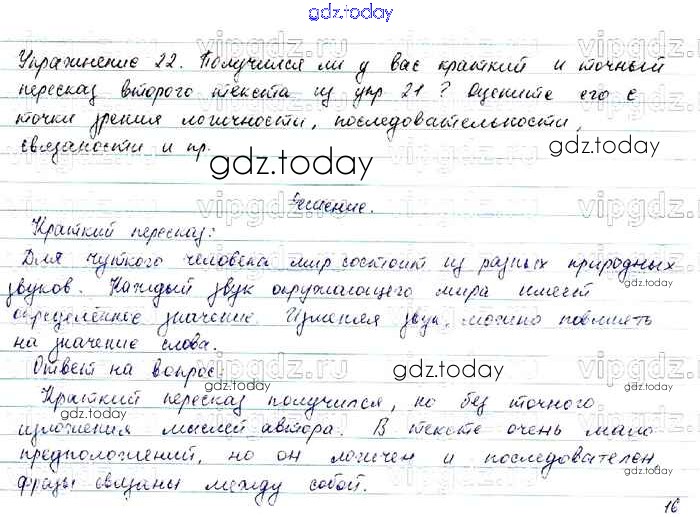 gdz.today
Упражнение 22. Получился ли у вас краткий и точный
пересказ второго текста из упр 21? Оцените его с
точки зрения логичности, последовательности,
связаности и пр.
gdz.today
Решение.
Краткий пересказ:
Для чуткого человека мир состоит из разных природных
звуков. Каждый звук окружающего мира имеет
gdz.today
определённое значение. Изменяя звук, можно повлиять
на значение слова.
Ответ на вопрос:
gdz.today
Краткий пересказ получился, но без точного
gdz.today
изложения мыслей автора. В тексте очень мало
предположений, но он логичен и последователен
gdz.today
фразы связаны между собой.
16